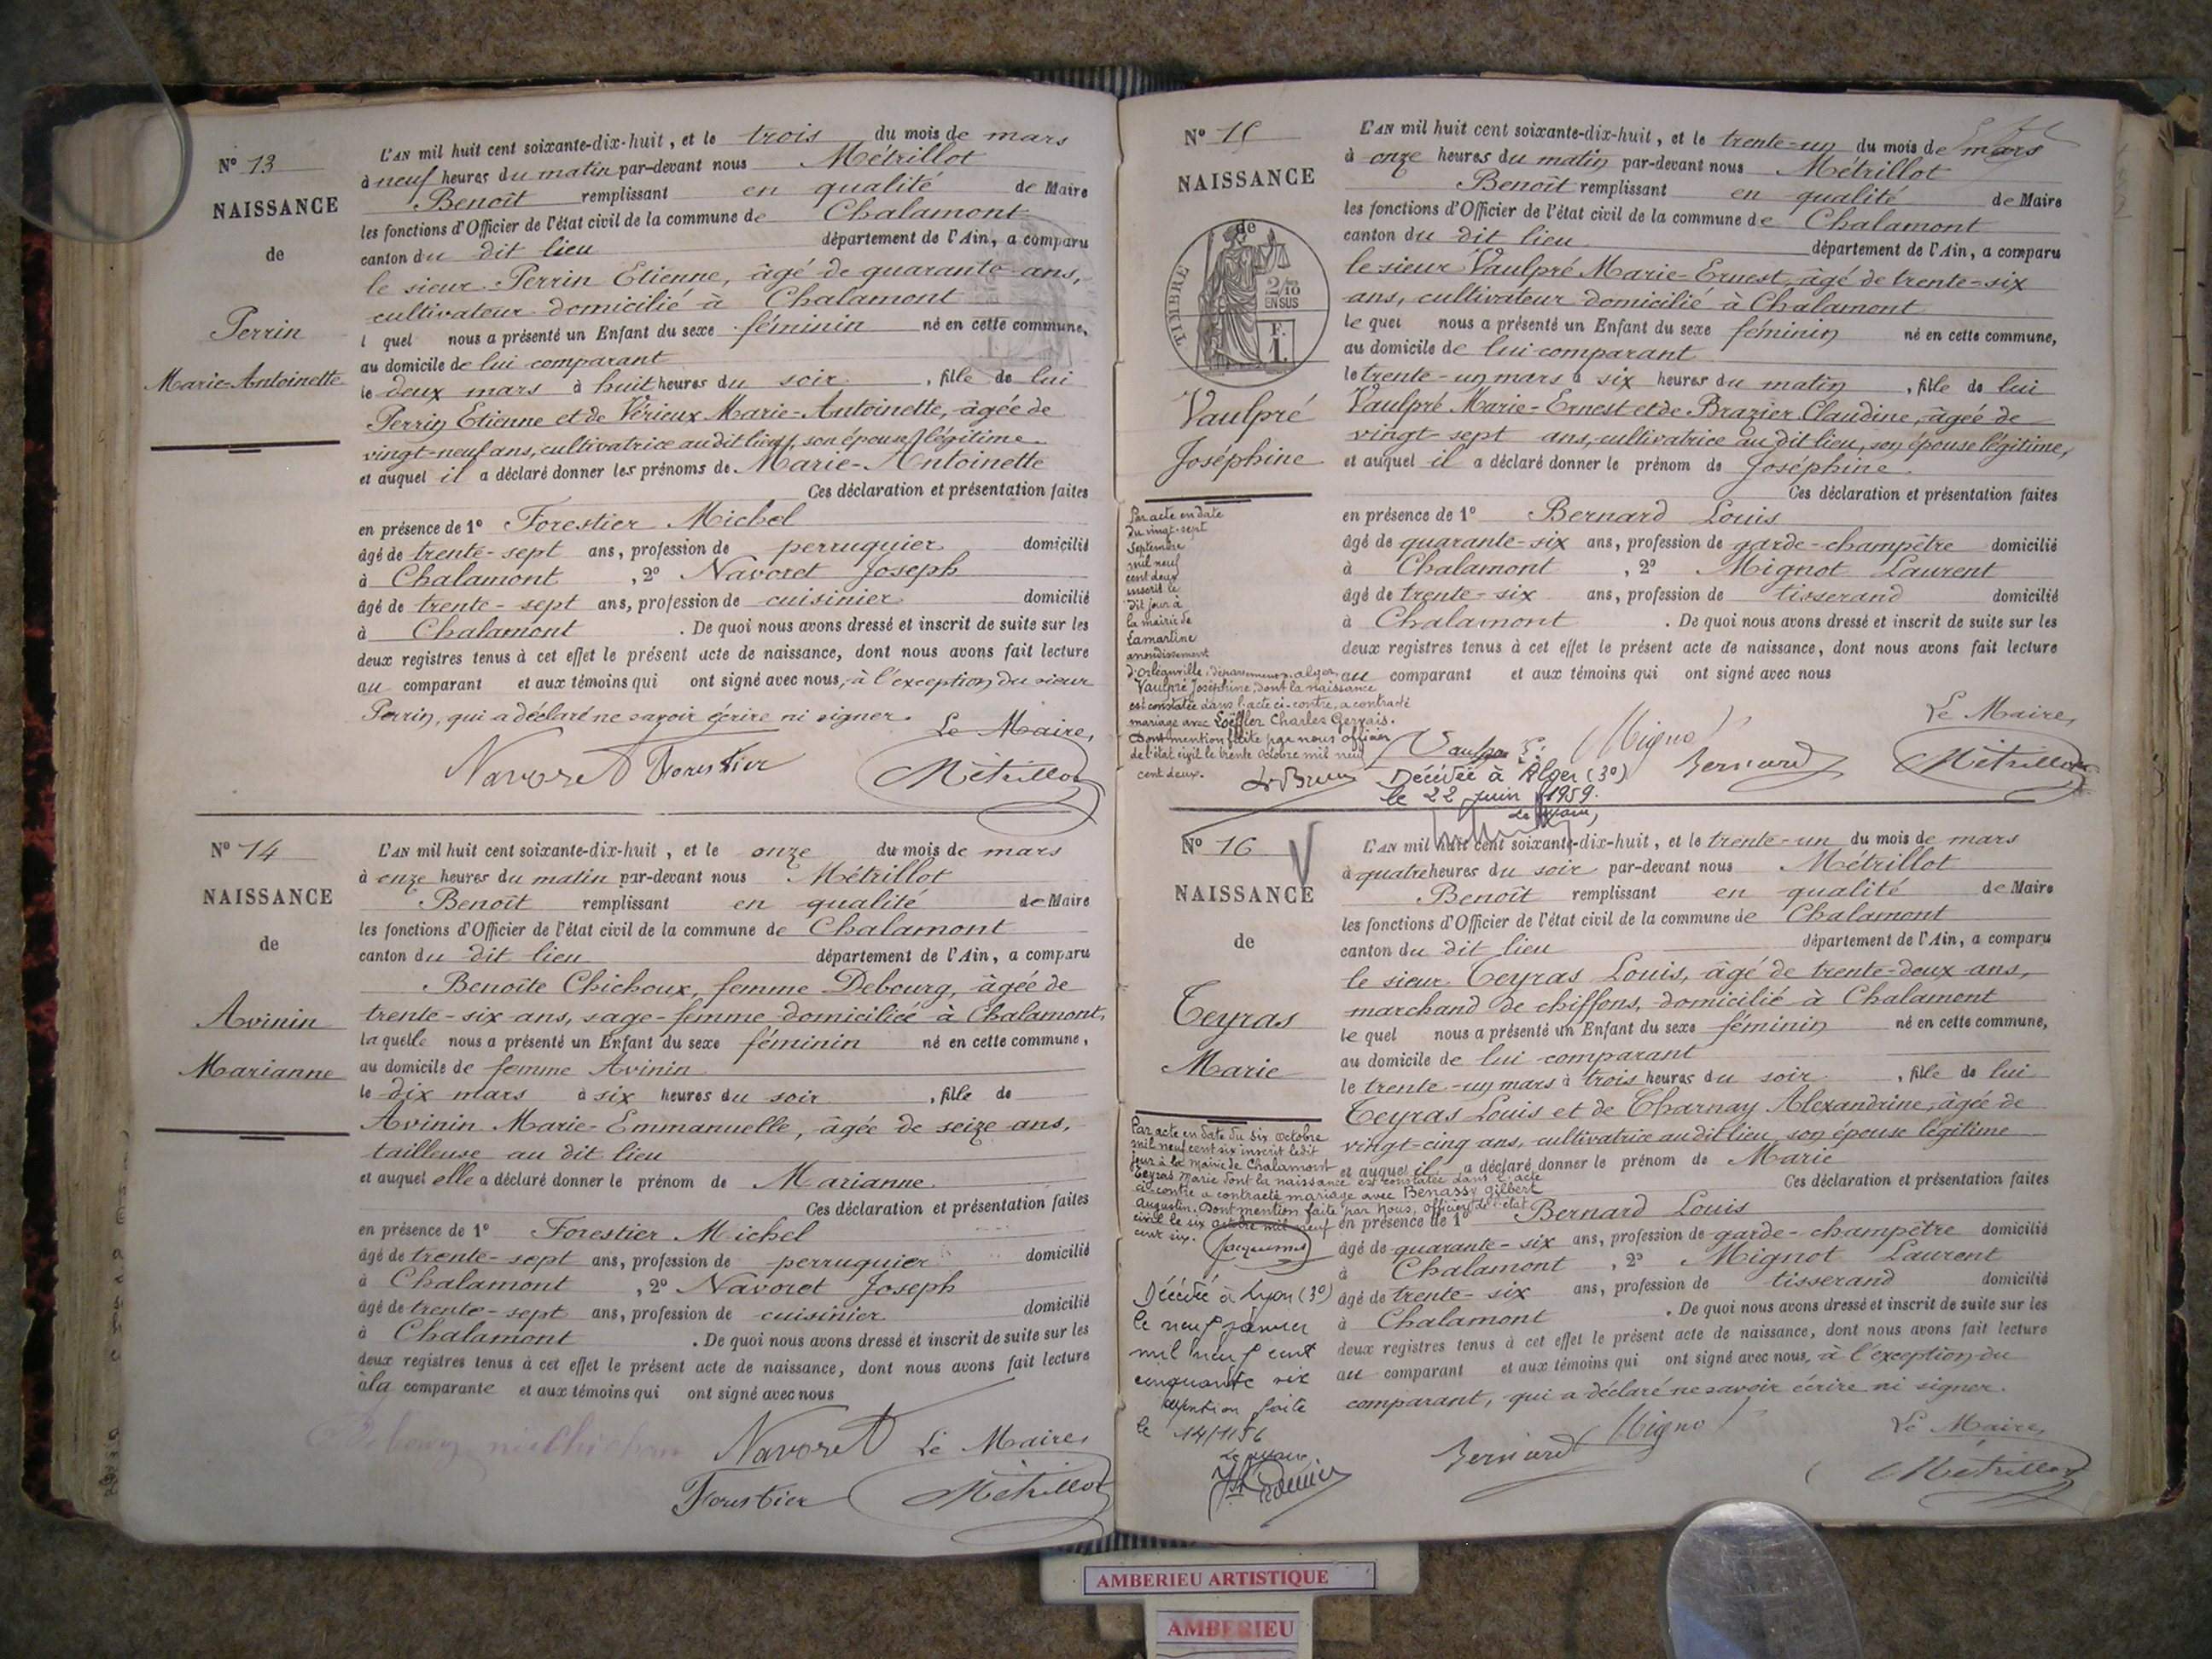 N° 13
NAISSANCE
de
Perrin
Marie-Antoinette
L'AN mil huit cent soixante-dix-huit, et le trois du mois de mars
à neuf heures du matin par-devant nous Métrillot
Benoît remplissant en qualité de Maire
les fonctions d'Officier de l'état civil de la commune de Chalamont
canton du dit lieu département de l'Ain, a comparu
le sieur Perrin Etienne, âgé de quarante ans,
cultivateur domicilié à Chalamont
l quel nous a présenté un Enfant du sexe féminin né en cette commune,
au domicile de lui comparant
le deux mars à huit heures du soir, fille de lui
Perrin Etienne et de Vérieux Marie-Antoinette, âgée de
vingt-neuf ans, cultivatrice au dit lieu, son épouse légitime
et auquel il a déclaré donner les prénoms de Marie-Antoinette
Ces déclaration et présentation faites
en présence de 1° Forestier Michel
âgé de trente-sept ans, profession de perruquier domicilié
à Chalamont, 2° Navoret Joseph
âgé de trente-sept ans, profession de cuisinier domicilié
à Chalamont. De quoi nous avons dressé et inscrit de suite sur les
deux registres tenus à cet effet le présent acte de naissance, dont nous avons fait lecture
au comparant et aux témoins qui ont signé avec nous, à l'exception du sieur
Perrin, qui a déclaré ne savoir écrire ni signer.
Le Maire,
Navoret Forestier Métrillot
N° 14
NAISSANCE
de
Avinin
Marianne
L'AN mil huit cent soixante-dix-huit, et le onze du mois de mars
à onze heures du matin par-devant nous Métrillot
Benoît remplissant en qualité de Maire
les fonctions d'Officier de l'état civil de la commune de Chalamont
canton du dit lieu département de l'Ain, a comparu
Benoîte Chichoux, femme Debourg, âgée de
trente-six ans, sage-femme domiciliée à Chalamont,
laquelle nous a présenté un Enfant du sexe féminin né en cette commune,
au domicile de femme Avinin
le dix mars à six heures du soir, fille de
Avinin Marie-Emmanuelle, âgée de seize ans,
tailleuse au dit lieu
et auquel elle a déclaré donner le prénom de Marianne
Ces déclaration et présentation faites
en présence de 1° Forestier Michel
âgé de trente-sept ans, profession de perruquier domicilié
à Chalamont, 2° Navoret Joseph
âgé de trente-sept ans, profession de cuisinier domicilié
à Chalamont. De quoi nous avons dressé et inscrit de suite sur les
deux registres tenus à cet effet le présent acte de naissance, dont nous avons fait lecture
à la comparante et aux témoins qui ont signé avec nous
Navoret Le Maire,
Forestier Métrillot
N° 15
NAISSANCE
de
TIMBRE
2/10
EN SUS
F.
1.
Vaulpré
Joséphine
L'AN mil huit cent soixante-dix-huit, et le trente-un du mois de mars
à onze heures du matin par-devant nous Métrillot
Benoît remplissant en qualité de Maire
les fonctions d'Officier de l'état civil de la commune de Chalamont
canton du dit lieu département de l'Ain, a comparu
le sieur Vaulpré Marie-Ernest, âgé de trente-six
ans, cultivateur domicilié à Chalamont
le quel nous a présenté un Enfant du sexe féminin né en cette commune,
au domicile de lui comparant
le trente-un mars à six heures du matin, fille de lui
Vaulpré Marie-Ernest et de Brazier Claudine, âgée de
vingt-sept ans, cultivatrice au dit lieu, son épouse légitime,
et auquel il a déclaré donner le prénom de Joséphine
Ces déclaration et présentation faites
en présence de 1° Bernard Louis
âgé de quarante-six ans, profession de garde-champêtre domicilié
à Chalamont, 2° Mignot Laurent
âgé de trente-six ans, profession de tisserand domicilié
à Chalamont. De quoi nous avons dressé et inscrit de suite sur les
deux registres tenus à cet effet le présent acte de naissance, dont nous avons fait lecture
au comparant et aux témoins qui ont signé avec nous
Le Maire,
Migno Bernard Métrillot
Par acte en date
du vingt-sept
septembre
mil neuf
cent deux
inscrit le
dit jour à
la mairie de
Lamartine
arrondissement
d'Orléanville, département d'Alger,
Vaulpré Joséphine, dont la naissance
est constatée dans l'acte ci-contre, a contracté
mariage avec Loëffler Charles Gervais.
Dont mention faite par nous officier
de l'état civil le trente octobre mil neuf
cent deux.
Décédée à Alger (3°)
le 22 juin 1959.
Le Maire,
N° 16
NAISSANCE
de
Teyras
Marie
L'AN mil huit cent soixante-dix-huit, et le trente-un du mois de mars
à quatre heures du soir par-devant nous Métrillot
Benoît remplissant en qualité de Maire
les fonctions d'Officier de l'état civil de la commune de Chalamont
canton du dit lieu département de l'Ain, a comparu
le sieur Teyras Louis, âgé de trente-deux ans,
marchand de chiffons, domicilié à Chalamont
le quel nous a présenté un Enfant du sexe féminin né en cette commune,
au domicile de lui comparant
le trente-un mars à trois heures du soir, fille de lui
Teyras Louis et de Charnay Alexandrine, âgée de
vingt-cinq ans, cultivatrice au dit lieu, son épouse légitime
et auquel il a déclaré donner le prénom de Marie
Ces déclaration et présentation faites
en présence de 1° Bernard Louis
âgé de quarante-six ans, profession de garde-champêtre domicilié
à Chalamont, 2° Mignot Laurent
âgé de trente-six ans, profession de tisserand domicilié
à Chalamont. De quoi nous avons dressé et inscrit de suite sur les
deux registres tenus à cet effet le présent acte de naissance, dont nous avons fait lecture
au comparant et aux témoins qui ont signé avec nous, à l'exception du
comparant, qui a déclaré ne savoir écrire ni signer.
Le Maire,
Bernard Migno Métrillot
Par acte en date du six octobre
mil neuf cent six inscrit ledit
jour à la Mairie de Chalamont
Teyras Marie dont la naissance est constatée dans l'acte
ci-contre a contracté mariage avec Benassy Gilbert
Augustin. Dont mention faite par Nous, officier de l'état
civil le six octobre mil neuf
cent six.
Décédée à Lyon (3°)
le neuf janvier
mil neuf cent
cinquante six
mention faite
le 14/1/56
Le Maire
AMBERIEU ARTISTIQUE
AMBERIEU